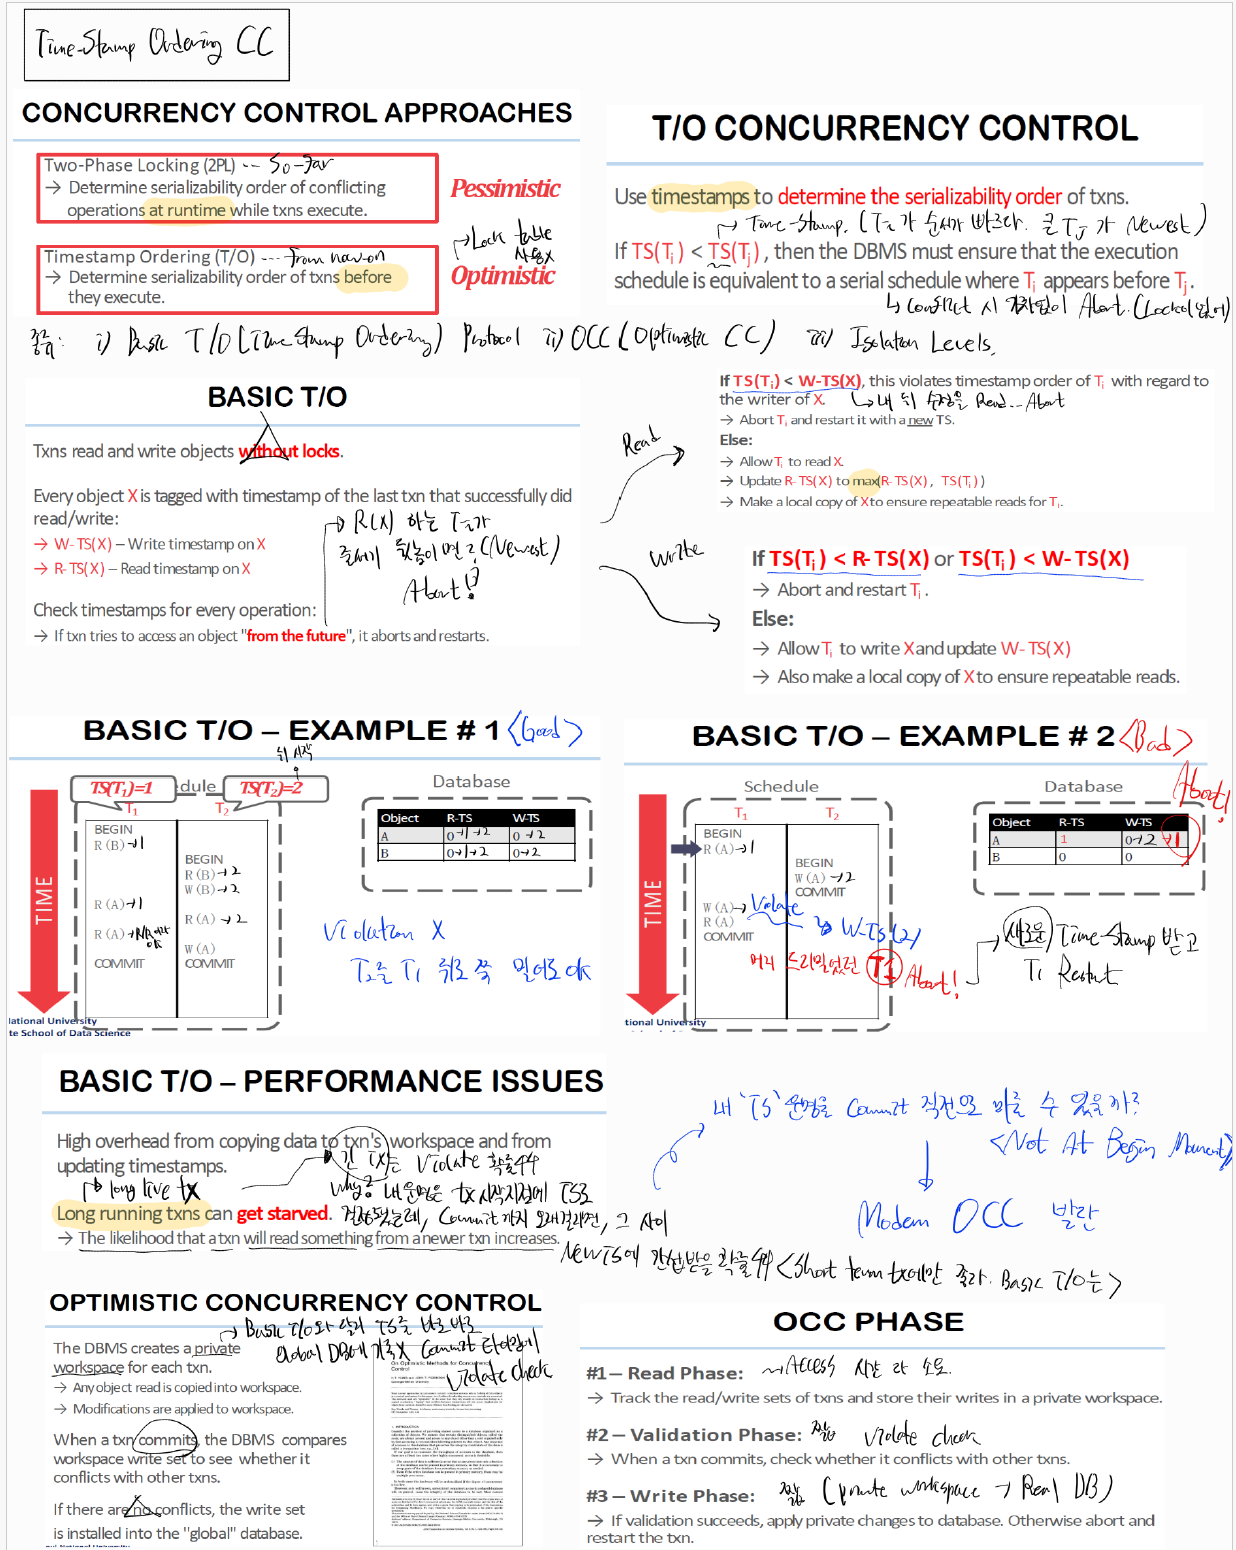 Time-Stamp Ordering CC
CONCURRENCY CONTROL APPROACHES
Two-Phase Locking (2PL) -- So-far
→ Determine serializability order of conflicting
operations at runtime while txns execute.
Pessimistic
Timestamp Ordering (T/O) --- from now-on
→ Determine serializability order of txns before
they execute.
Optimistic
→ Lock table
사용X
T/O CONCURRENCY CONTROL
Use timestamps to determine the serializability order of txns.
→ Time-Stamp. (Ti가 순서가 빠르다. 큰 Tj가 Newest)
If TS(Ti) < TS(Tj), then the DBMS must ensure that the execution
schedule is equivalent to a serial schedule where Ti appears before Tj.
↳ Conflict 시 가차없이 Abort. (Lock이 없어)
종류: i) Basic T/O (Time Stamp Ordering) Protocol ii) OCC (Optimistic CC) iii) Isolation Levels.
BASIC T/O
Txns read and write objects without locks.
Every object X is tagged with timestamp of the last txn that successfully did
read/write:
→ W-TS(X) – Write timestamp on X
→ R-TS(X) – Read timestamp on X
→ R(X) 하는 Ti가
(Newest)
Abort!?
Check timestamps for every operation:
→ If txn tries to access an object "from the future", it aborts and restarts.
Read
If TS(Ti) < W-TS(X), this violates timestamp order of Ti with regard to
the writer of X.
↳ 내 뒤 수정을 Read... Abort
→ Abort Ti and restart it with a new TS.
Else:
→ Allow Ti to read X.
→ Update R-TS(X) to max(R-TS(X), TS(Ti))
→ Make a local copy of X to ensure repeatable reads for Ti.
Write
If TS(Ti) < R-TS(X) or TS(Ti) < W-TS(X)
→ Abort and restart Ti.
Else:
→ Allow Ti to write X and update W-TS(X)
→ Also make a local copy of X to ensure repeatable reads.
BASIC T/O – EXAMPLE #1 <Good>
뒤 시작
TS(T1)=1 dule TS(T2)=2
T1 T2
TIME
BEGIN
R(B)→1
BEGIN
R(B)→2
W(B)→2
R(A)→1
R(A)→2
R(A)→
W(A)
COMMIT COMMIT
Database
Object R-TS W-TS
A 0→1→2 0→2
B 0→1→2 0→2
Violation X
T2를 T1 뒤로 쭉 밀어도 ok
National University
te School of Data Science
BASIC T/O – EXAMPLE #2 <Bad>
Abort!
Schedule
T1 T2
TIME
BEGIN
R(A)→1
BEGIN
W(A)→2
COMMIT
W(A)→ Violate
R(A) → W-TS(2)
COMMIT
T1 Abort!
Database
Object R-TS W-TS
A 1 0→2→1
B 0 0
→ 새로운 Time-Stamp 받고
T1 Restart
tional University
BASIC T/O – PERFORMANCE ISSUES
High overhead from copying data to txn's workspace and from
updating timestamps.
→ long live tx
→ 긴 TX는 Violate 확률 ↑↑
Why? 내 운명은 tx 시작지점에 TS로
결정됐는데, Commit까지 오래걸리면, 그 사이
New TS에 간섭받을 확률 ↑↑ <Short term tx에만 좋다. Basic T/O는>
Long running txns can get starved.
→ The likelihood that a txn will read something from a newer txn increases.
내 'TS' 운명을 Commit 직전으로 미룰 수 있을까?
<Not At Begin Moment>
Modern OCC 발란
OPTIMISTIC CONCURRENCY CONTROL
→ Basic T/O와 달리 TS를 바로바로
Global DB에 기록X Commit 타이밍에
Violate check
The DBMS creates a private
workspace for each txn.
→ Any object read is copied into workspace.
→ Modifications are applied to workspace.
When a txn commits, the DBMS compares
workspace write set to see whether it
conflicts with other txns.
If there are no conflicts, the write set
is installed into the "global" database.
On Optimistic Methods for Concurrency
Control
OCC PHASE
#1 – Read Phase: → Access 시간 다 소요.
→ Track the read/write sets of txns and store their writes in a private workspace.
#2 – Validation Phase: 짧음 Violate check
→ When a txn commits, check whether it conflicts with other txns.
#3 – Write Phase: 짧음 (private workspace → Real DB)
→ If validation succeeds, apply private changes to database. Otherwise abort and
restart the txn.